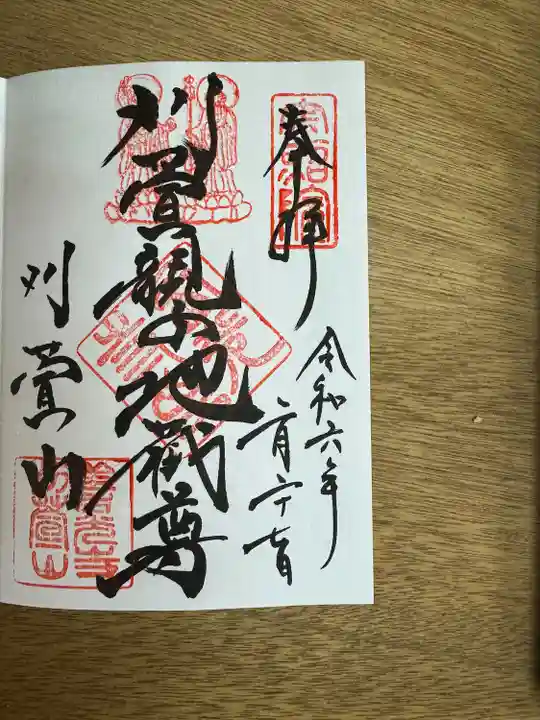 奉拝
令和六年
二月二十七日
刈萱親子地蔵尊
刈萱山